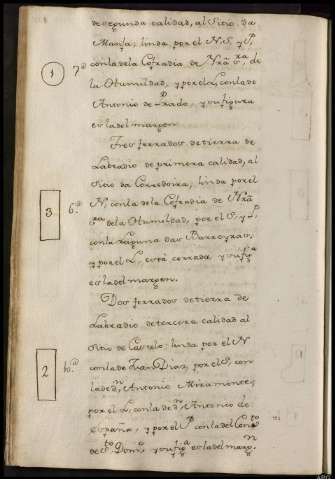 de segunda calidad, al Sitio da
linda por el N. S. y P.
con la de la Cofradia de Nrã
1 7º Sra. de
la Humildad, y por el L. con la de
Antonio de Prado, y su figura
es la del margen.
Tres ferrados de tierra de
Labradio de primera calidad, al
Sitio da Corredoira, linda por el
3 6º N. con la de la Cofradia de Nrã
Sra. de la Humildad, por el S. y P.
con la
y por el L. está cerrada, y su figª
es la del margen.
Dos ferrados de tierra de
Labradio de tercera calidad al
Sitio de linda por el N
2 10º con la de Juan Dias, por el S. con
la de Dn. Antonio
por el L. con la de Dn. Antonio de
españa, y por el P. con la del Convto
de Sto. Domº y su figª es la del margn